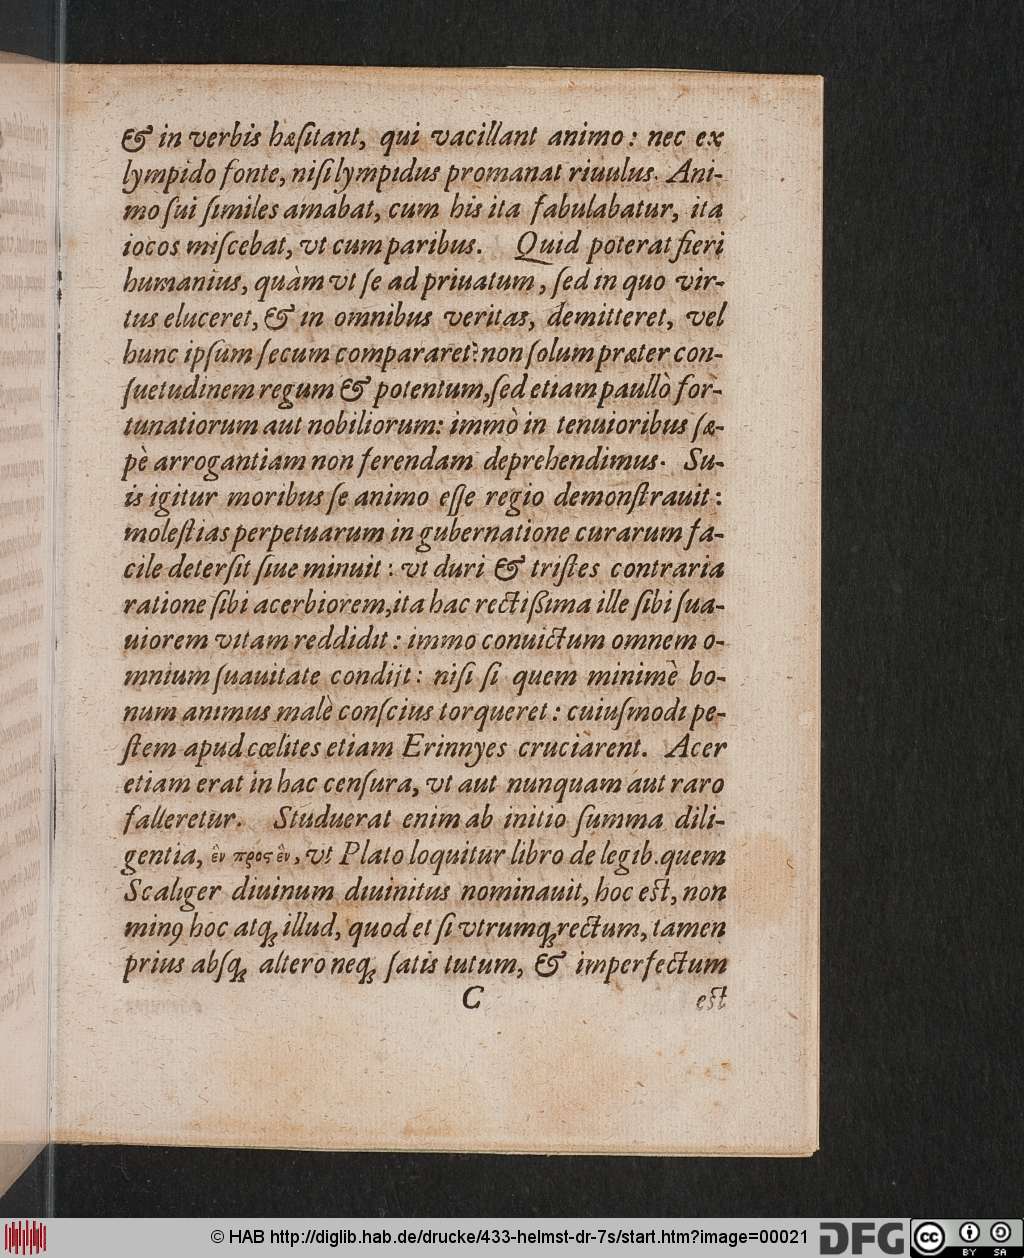 & in verbis hæſitant, qui vacillant animo: nec ex
lympido fonte, niſi lympidus promanat riuulus. Ani-
mo ſui ſimiles amabat, cum his ita fabulabatur, ita
iocos miſcebat, vt cum paribus. Quid poterat fieri
humanius, quàm vt ſe ad priuatum, ſed in quo vir-
tus eluceret, & in omnibus veritas, demitteret, vel
hunc ipſum ſecum compararet? non ſolum præter con-
ſuetudinem regum & potentum, ſed etiam paullò for-
tunatiorum aut nobiliorum: immò in tenuioribus ſæ-
pè arrogantiam non ferendam deprehendimus. Su-
is igitur moribus ſe animo eſſe regio demonſtrauit:
moleſtias perpetuarum in gubernatione curarum fa-
cile deterſit ſiue minuit: vt duri & triſtes contraria
ratione ſibi acerbiorem, ita hac rectißima ille ſibi ſua-
uiorem vitam reddidit: immo conuictum omnem o-
mnium ſuauitate condijt: niſi ſi quem minimè bo-
num animus malè conſcius torqueret: cuiuſmodi pe-
ſtem apud cœlites etiam Erinnyes cruciarent. Acer
etiam erat in hac cenſura, vt aut nunquam aut raro
falleretur. Studuerat enim ab initio ſumma dili-
gentia, ἓν πρὸς ἓν, vt Plato loquitur libro de legib. quem
Scaliger diuinum diuinitus nominauit, hoc eſt, non
minꝰ hoc atq; illud, quod et ſi vtrumq; rectum, tamen
prius abſq; altero neq; ſatis tutum, & imperfectum
C eſt
© HAB http://diglib.hab.de/drucke/433-helmst-dr-7s/start.htm?image=00021 DFG cc BY SA